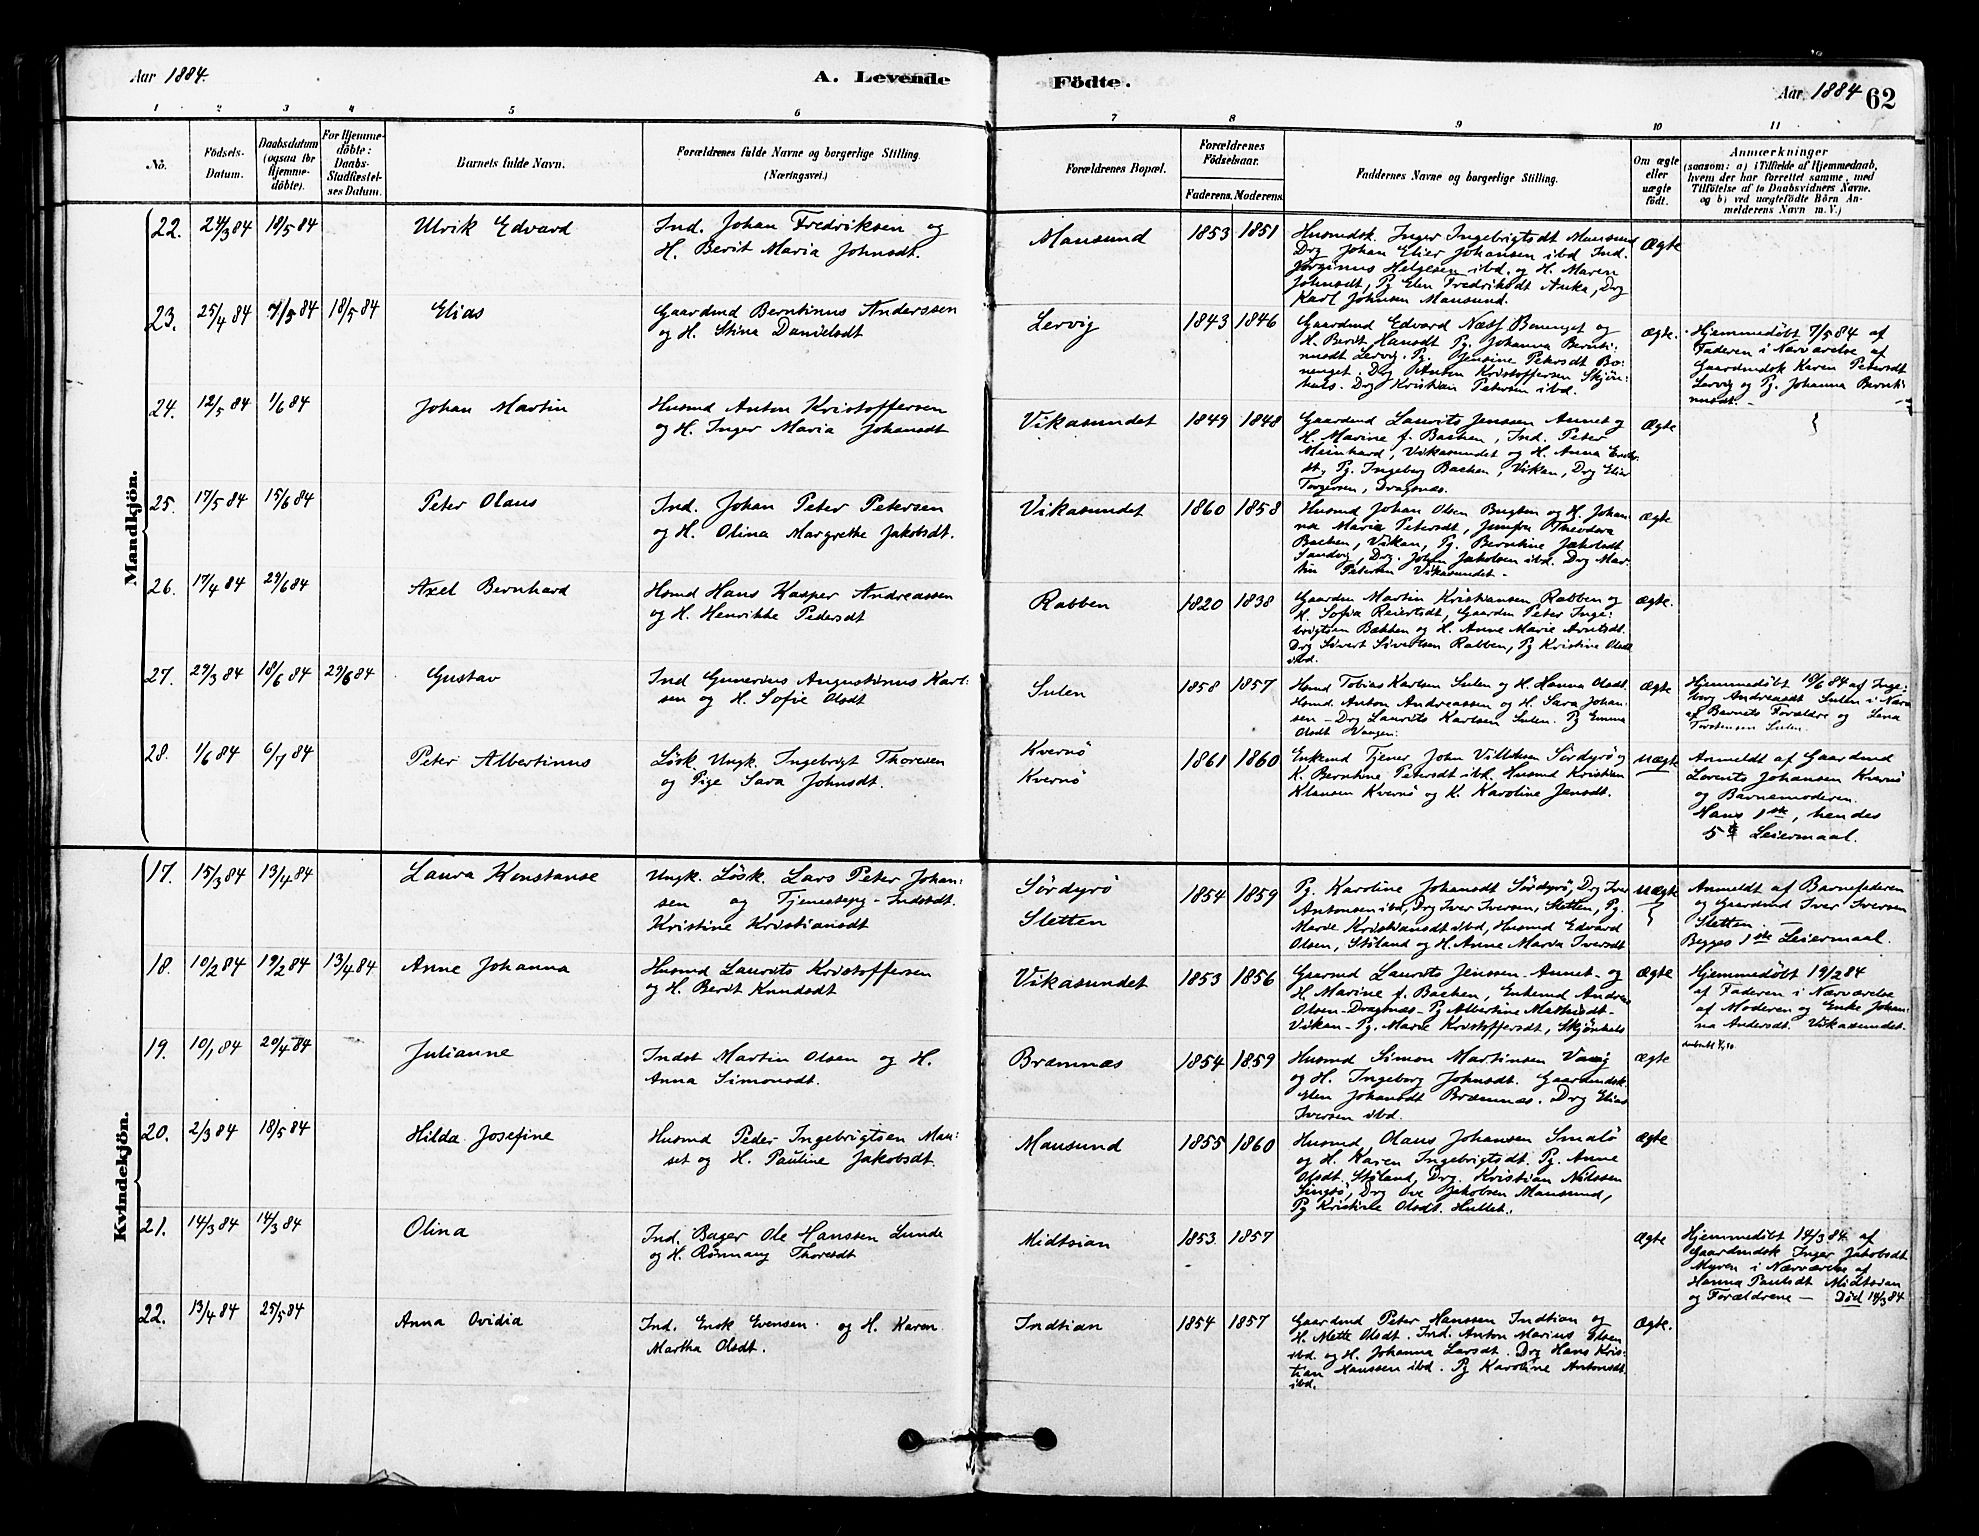 Aar 1884.
A. Levende Födte.
Aar 1884 62
1 2 3 4 5 6 7 8 9 10 11
No.
Födsels-Datum.
Daabsdatum (ogsaa for Hjemme-döbte).
For Hjemme-döbte: Daabs-Stadfæstel-ses Datum.
Barnets fulde Navn.
Forældrenes fulde Navne og borgerlige Stilling.
(Næringsvei.)
Forældrenes Bopæl.
Forældrenes Födselsaar.
Faderens. Moderens.
Faddernes Navne og borgerlige Stilling.
Om ægte eller uægte födt.
Anmærkninger
(saasom: a) i Tilfælde af Hjemmedaab,
hvem der har forrettet samme, med
Tilföielse af to Daabsvidners Navne.
og b) ved uægtefödte Börn An-
melderens Navn m. V.)
Mandkjön.
22. 24/3 84 18/5 84 Ulrik Edvard
Ind. Johan Fredriksen og
H. Berit Maria Johnsdt.
Mausund 1853 1851
Husmdsk. Inger Ingebrigtsdt Mausund
Drg Johan Elier Johansen ibd Ind.
Jørginus Helgesen ibd. og H. Maren
Johnsdt, Pg Elen Fredriksdt Auka, Drg
Karl Johnsen Mausund.
Ægte
23. 25/4 84 7/5 84 18/5 84 Elias
Gaardmd Berntinus Anderssen
og H. Stina Danielsdt
Lervig 1843 1846
Gaardmd Edvard Næss Bonenget og
H. Berit Hansdt Pg. Johanna Bernti-
nusdt Lervig. Pg. Jensine Petersdt Bo-
nenget. Drg Anton Kristoffersen Skjøn-
hals. Drg Kristian Petersen ibd.
Ægte.
Hjemmedøbt 7/5 84 af
Faderen i Nærværelse af
Gaardmdsk Karen Petersdt
Lervig og Pg. Johanna Bernti-
nusdt.
24. 12/5 84 1/6 84 Johan Martin
Husmd Anton Kristoffersen
og H. Inger Maria Johansdt
Vikasundet 1849 1848
Gaardmd Laurits Jenssen Annet og
H. Marine f. Bachen, Ind. Peter
Meinhard, Vikasundet og H. Anna
Pg. Ingeborg Bachen, Vikan, Drg Elier
Torgersen, Dragsnæs.
Ægte
25. 17/5 84 15/6 84 Peter Olaus
Ind. Johan Peter Petersen
og H. Olina Margrethe Jakobsdt.
Vikasundet 1860 1858
Husmd Johan Olsen Bugten og H. Johan-
na Maria Petersdt, Jomfru Theodora
Bachen, Vikan, Pg. Berntine Jakobsdt
Sandvig, Drg. Johan Jakobsen ibd. Drg Mar-
tin Petersen Vikasundet.
Ægte
26. 17/4 84 29/6 84 Axel Bernhard
Hsmd Hans Kasper Andreassen
og H. Henrikke Pedersdt
Rabben 1820 1838
Gaardm Martin Kristiansen Rabben og
H. Sofia Reiertsdt, Gaardm Peter Inge-
brigtsen Bakken og H. Anne Marie Arntsdt.
Drg Sivert Sivertsen Rabben, Pg Kristine Olsdt
ibd.
Ægte.
27. 29/3 84 18/6 84 29/6 84 Gustav
Ind Gunerius Augustinus Karl-
sen og H. Sofie Olsdt
Sulen 1858 1857
Hsmd Tobias Karlsen Sulen og H. Hanna Olsdt.
Hsmd. Anton Andreassen og H. Sara Johan-
sen - Drg Laurits Karlsen Sulen. Pg Emma
Olsdt Vaagen.
Ægte
Hjemmedøbt 18/6 84 af Inge-
borg Andreasdt Sulen i Nærv.
af Barnets Forældre og Lena
Torstensen Sulen.
28. 1/6 84 6/7 84 Peter Albertinus
Løsk. Ungk. Ingebrigt Thoresen
og Pige Sara Johnsdt.
Kvernø
Kvernø
1861 1860
Enkemd Tjener John Villiksen Sørdyrø og
K. Berntine Petersdt ibd. Husmd Kristian
Klausen Kvernø og K. Karoline Jensdt.
uægte
Anmeldt af Gaardmd
Lorents Johansen Kvernø
og Barnemoderen.
Hans 1ste, hendes
5te Leiermaal.
Kvindekjön.
17. 15/3 84 13/4 84 Laura Konstanse
Ungk. Løsk. Lars Peter Johan-
sen og Tjenestepg - Indstdt.
Kristine Kristiansdt
Sørdyrø
Sletten
1854 1859
Pg. Karoline Johansdt Sørdyrø, Drg Iver
Antonsen ibd, Drg Iver Iversen, Sletten, Pg.
Marie Kristiansdt ibd, Husmd Edvard
Olsen, Stiland og H. Anne Maria Iversdt
uægte
Anmeldt af Barnefaderen
og Gaardmd Iver Iversen
Sletten.
Begges 1ste Leiermaal.
18. 10/2 84 19/2 84 13/4 84 Anne Johanna
Husmd Laurits Kristoffersen
og H. Berit Knudsdt
Vikasundet 1853 1856
Gaarmd Laurits Jenssen Annet og
H. Marine f. Bachen, Enkemd Andreas
Olsen - Dragsnæs - Pg Albertine Mathisdt -
Vikan - Pg. Marie Kristoffersdt, Skjønhals
Ægte
Hjemmedøbt 19/2 84
af Faderen i Nærværelse
af Moderen og Enke Johan-
na Andersdt. Vikasundet.
19. 10/1 84 20/4 84 Julianne
Indst Martin Olsen og H.
Anna Simonsdt.
Bræmnæs 1854 1859
Husmd Simon Martinsen Vaag
og H. Ingeborg Johnsdt. Gaardmdsk.
Elen Johansdt Bræmnæs. Drg Elias
Iversen ibd.
Ægte
20. 2/3 84 18/5 84 Hilda Josefine
Husmd Peder Ingebrigtsen Mau-
set og H. Pauline Jakobsdt.
Mausund 1855 1860
Husmd Olaus Johansen Smalø
og H. Karen Ingebrigtsdt. Pg. Anne
Olsdt Stiland, Drg. Kristian Nilssen
Singsø, Drg Ove Jakobsen Mausund,
Pg Kristine Olsdt. Hullet.
Ægte
21. 14/3 84 14/3 84 Olina
Ind. Bager Ole Hanssen Lunde
og H. Rønnaug Thoresdt
Midtsian 1853. 1857
Ægte
Hjemmedøbt 14/3 84 af
Gaardmdsk Inger Jakobsdt
Myren i Nærværelse af
Hanna Paulsdt Midtsian
og Forældrene - Død 14/3 84
22. 13/4 84 25/5 84 Anna Ovidia
Ind. Enok Evensen og H. Karen
Martha Olsdt.
Indtian 1854 1857
Gaardmd Peter Hanssen Indtian og
H. Mette Olsdt. Ind. Anton Marius Olsen
ibd. og H. Johanna Larsdt. Drg Hans Kris-
tian Hanssen ibd. Pg Karoline Antonsdt
ibd.
Ægte.